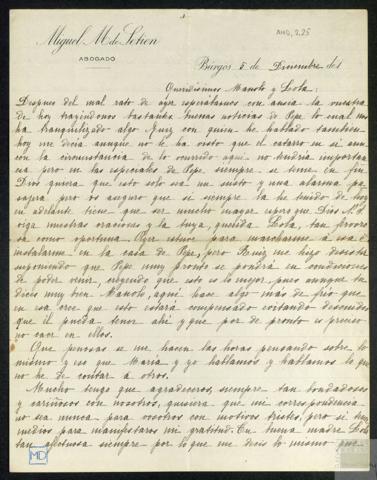 AHO, 2.25
Miguel M. de Setien
ABOGADO
Burgos 5 de Diciembre del
Queridísimos Manolo y Lola:
Despues del mal rato de ayer esperábamos con ansia la vuestra
de hoy trayéndonos bastante buenas noticias de Pepe lo cual nos
ha tranquilizado algo. Ruiz con quien he hablado tambien
hoy me decia aunque no le ha visto que el catarro en si aun
con la circunstancia de lo ocurrido aqui no tendria importan
cia pero en las especiales de Pepe siempre se teme. En fin
Dios quiera que esto solo sea un susto y una alarma pa
sajera pero os aseguro que si siempre la he tenido de hoy
en adelante tiene que ser mucho mayor espero que Dios N. S.
oiga nuestras oraciones y la tuya, querida Lola, tan fervoro
sa como oportuna. Ayer estuve para marcharme á esa é
instalarme en la casa de Pepe, pero Ruiz me hizo desistir
suponiendo que Pepe muy pronto se pondrá en condiciones
de poder venir, creyendo que esto es lo mejor pues aunque tu
dices muy bien Manolo, aqui hace algo más de frio que
en esa cree que esto estará compensado evitando descuidos
que él pueda tener ahi y que por de pronto es preciso
no caer en ellos.
Que pensar se me hacen las horas pensando sobre lo
mismo y eso que Maria y yo hablamos y hablamos lo que
no he de contar á otros.
Mucho tengo que agradeceros siempre tan bondadosos
y cariñosos con nosotros, quisiera que mi correspondencia
no sea nunca para vosotros con motivos tristes, pero si
medios para manifestaros mi gratitud. Tu buena madre Lola
tan afectuosa siempre por lo que me decis lo mismo que
MD